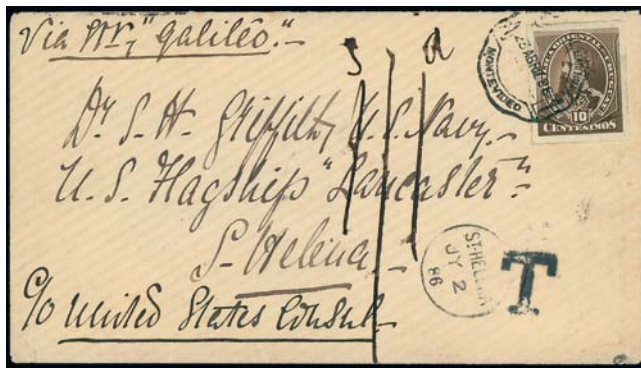 Via Str, "Galileo."
s/d
Dr. S. H. Griffith, U.S. Navy,
U.S. Flagship "Lancaster"
St. Helena.
c/o United States Consul
MONTEVIDEO
10
CENTESIMOS
ST. HELENA
JY 2
86
T